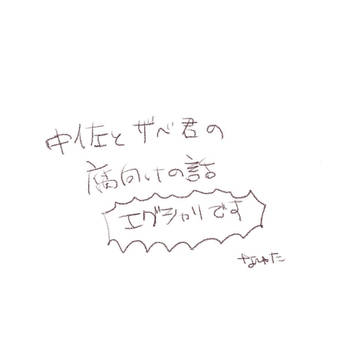 中佐とザベ君の
腐向けの話
エグシャリです
なゆた